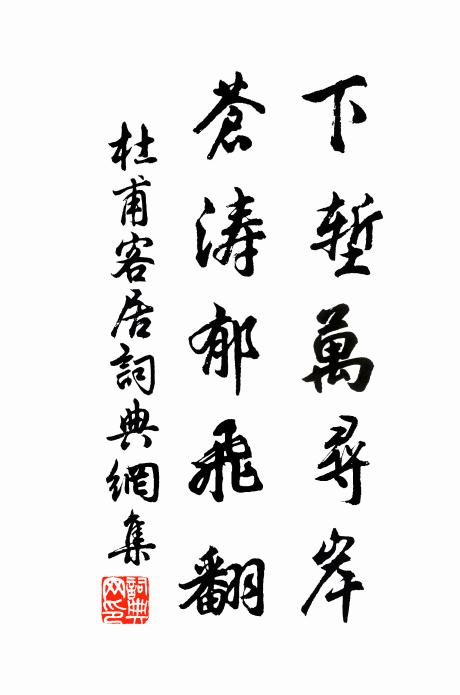 下堑萬尋岸
蒼涛郁飛翻
杜甫客居詞典網集
詞典網印